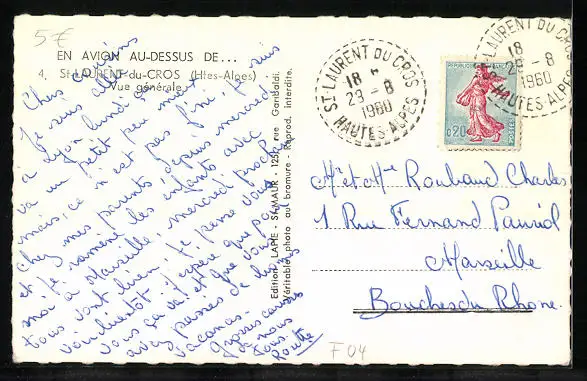 5€
EN AVION AU-DESSUS DE...
4. St-LAURENT-du-CROS (Htes-Alpes)
Vue générale
Chers cousins
Je suis allée je suis
à Lyon lundi
va un petit peu mieux
mais, ce n'est pas fini. Je suis
chez mes parents depuis mercredi
et je ramène les enfants avec
moi à Marseille, mercredi prochain
tous vont bien, je pense vous
voir bientôt. J'espère que pour
vous ça va et que vous
avez passés de bonnes
vacances.
Grosses caresses
de nous
tous.
Edition LAPIE - St-MAUR - 125, rue Garibaldi.
Véritable photo au bromure - Reprod. Interdite.
ST-LAURENT DU CROS
18 H
29 - 8
1960
HAUTES-ALPES
REPUBLIQUE FRANCAISE
0,20
POSTES
ST-LAURENT DU CROS
18
29 - 8
1960
HAUTES-ALPES
Mr et Mme Roubaud Charles
1 Rue Fernand Pauriol
Marseille
Bouches du Rhône.
F 04